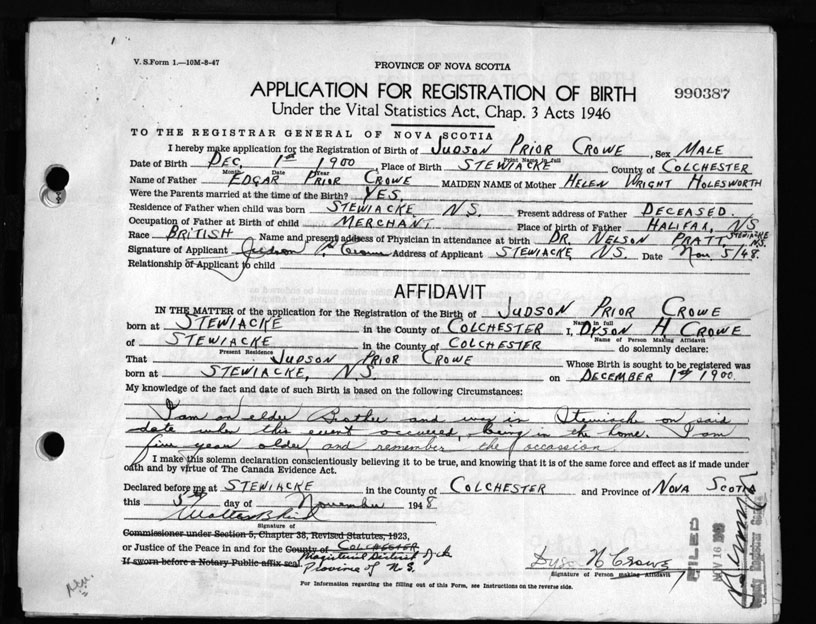 V. S. Form 1.—10M-8-47
PROVINCE OF NOVA SCOTIA
APPLICATION FOR REGISTRATION OF BIRTH
990387
Under the Vital Statistics Act, Chap. 3 Acts 1946
TO THE REGISTRAR GENERAL OF NOVA SCOTIA
I hereby make application for the Registration of Birth of JUDSON PRIOR CROWE, Sex MALE
Print Name in full
Date of Birth DEC. 1st 1900, Place of Birth STEWIACKE County of COLCHESTER
Month Date Year
Name of Father EDGAR PRIOR CROWE MAIDEN NAME of Mother HELEN WRIGHT HOLESWORTH
Were the Parents married at the time of the Birth? YES.
Residence of Father when child was born STEWIACKE N.S. Present address of Father DECEASED.
Occupation of Father at Birth of child MERCHANT Place of birth of Father HALIFAX, NS
Race BRITISH Name and present address of Physician in attendance at birth DR. NELSON PRATT, STEWIACKE N.S.
Signature of Applicant Judson P. Crowe Address of Applicant STEWIACKE N.S. Date Nov 5/48.
Relationship of Applicant to child
AFFIDAVIT
IN THE MATTER of the application for the Registration of the Birth of JUDSON PRIOR CROWE
Name in full
born at STEWIACKE in the County of COLCHESTER I, DYSON H CROWE
Name of Person Making Affidavit
of STEWIACKE in the County of COLCHESTER do solemnly declare:
Present Residence
That JUDSON PRIOR CROWE Whose Birth is sought to be registered was
born at STEWIACKE, N.S. on DECEMBER 1st 1900.
My knowledge of the fact and date of such Birth is based on the following Circumstances:
I am an elder Brother and was in Stewiacke on said
date when this event occurred, being in the home. I am
five year older, and remember the occassion.
I make this solemn declaration conscientiously believing it to be true, and knowing that it is of the same force and effect as if made under
oath and by virtue of The Canada Evidence Act.
Declared before me at STEWIACKE in the County of COLCHESTER and Province of NOVA SCOTIA
this 5th day of November 1948
Signature of
Commissioner under Section 5, Chapter 38, Revised Statutes, 1923,
or Justice of the Peace in and for the County of COLCHESTER
Magisterial District of
If sworn before a Notary Public affix seal
Province of N.S.
Dyson H Crowe
Signature of Person making Affidavit
For Information regarding the filling out of this Form, see Instructions on the reverse side.
FILED
NOV 16 1948